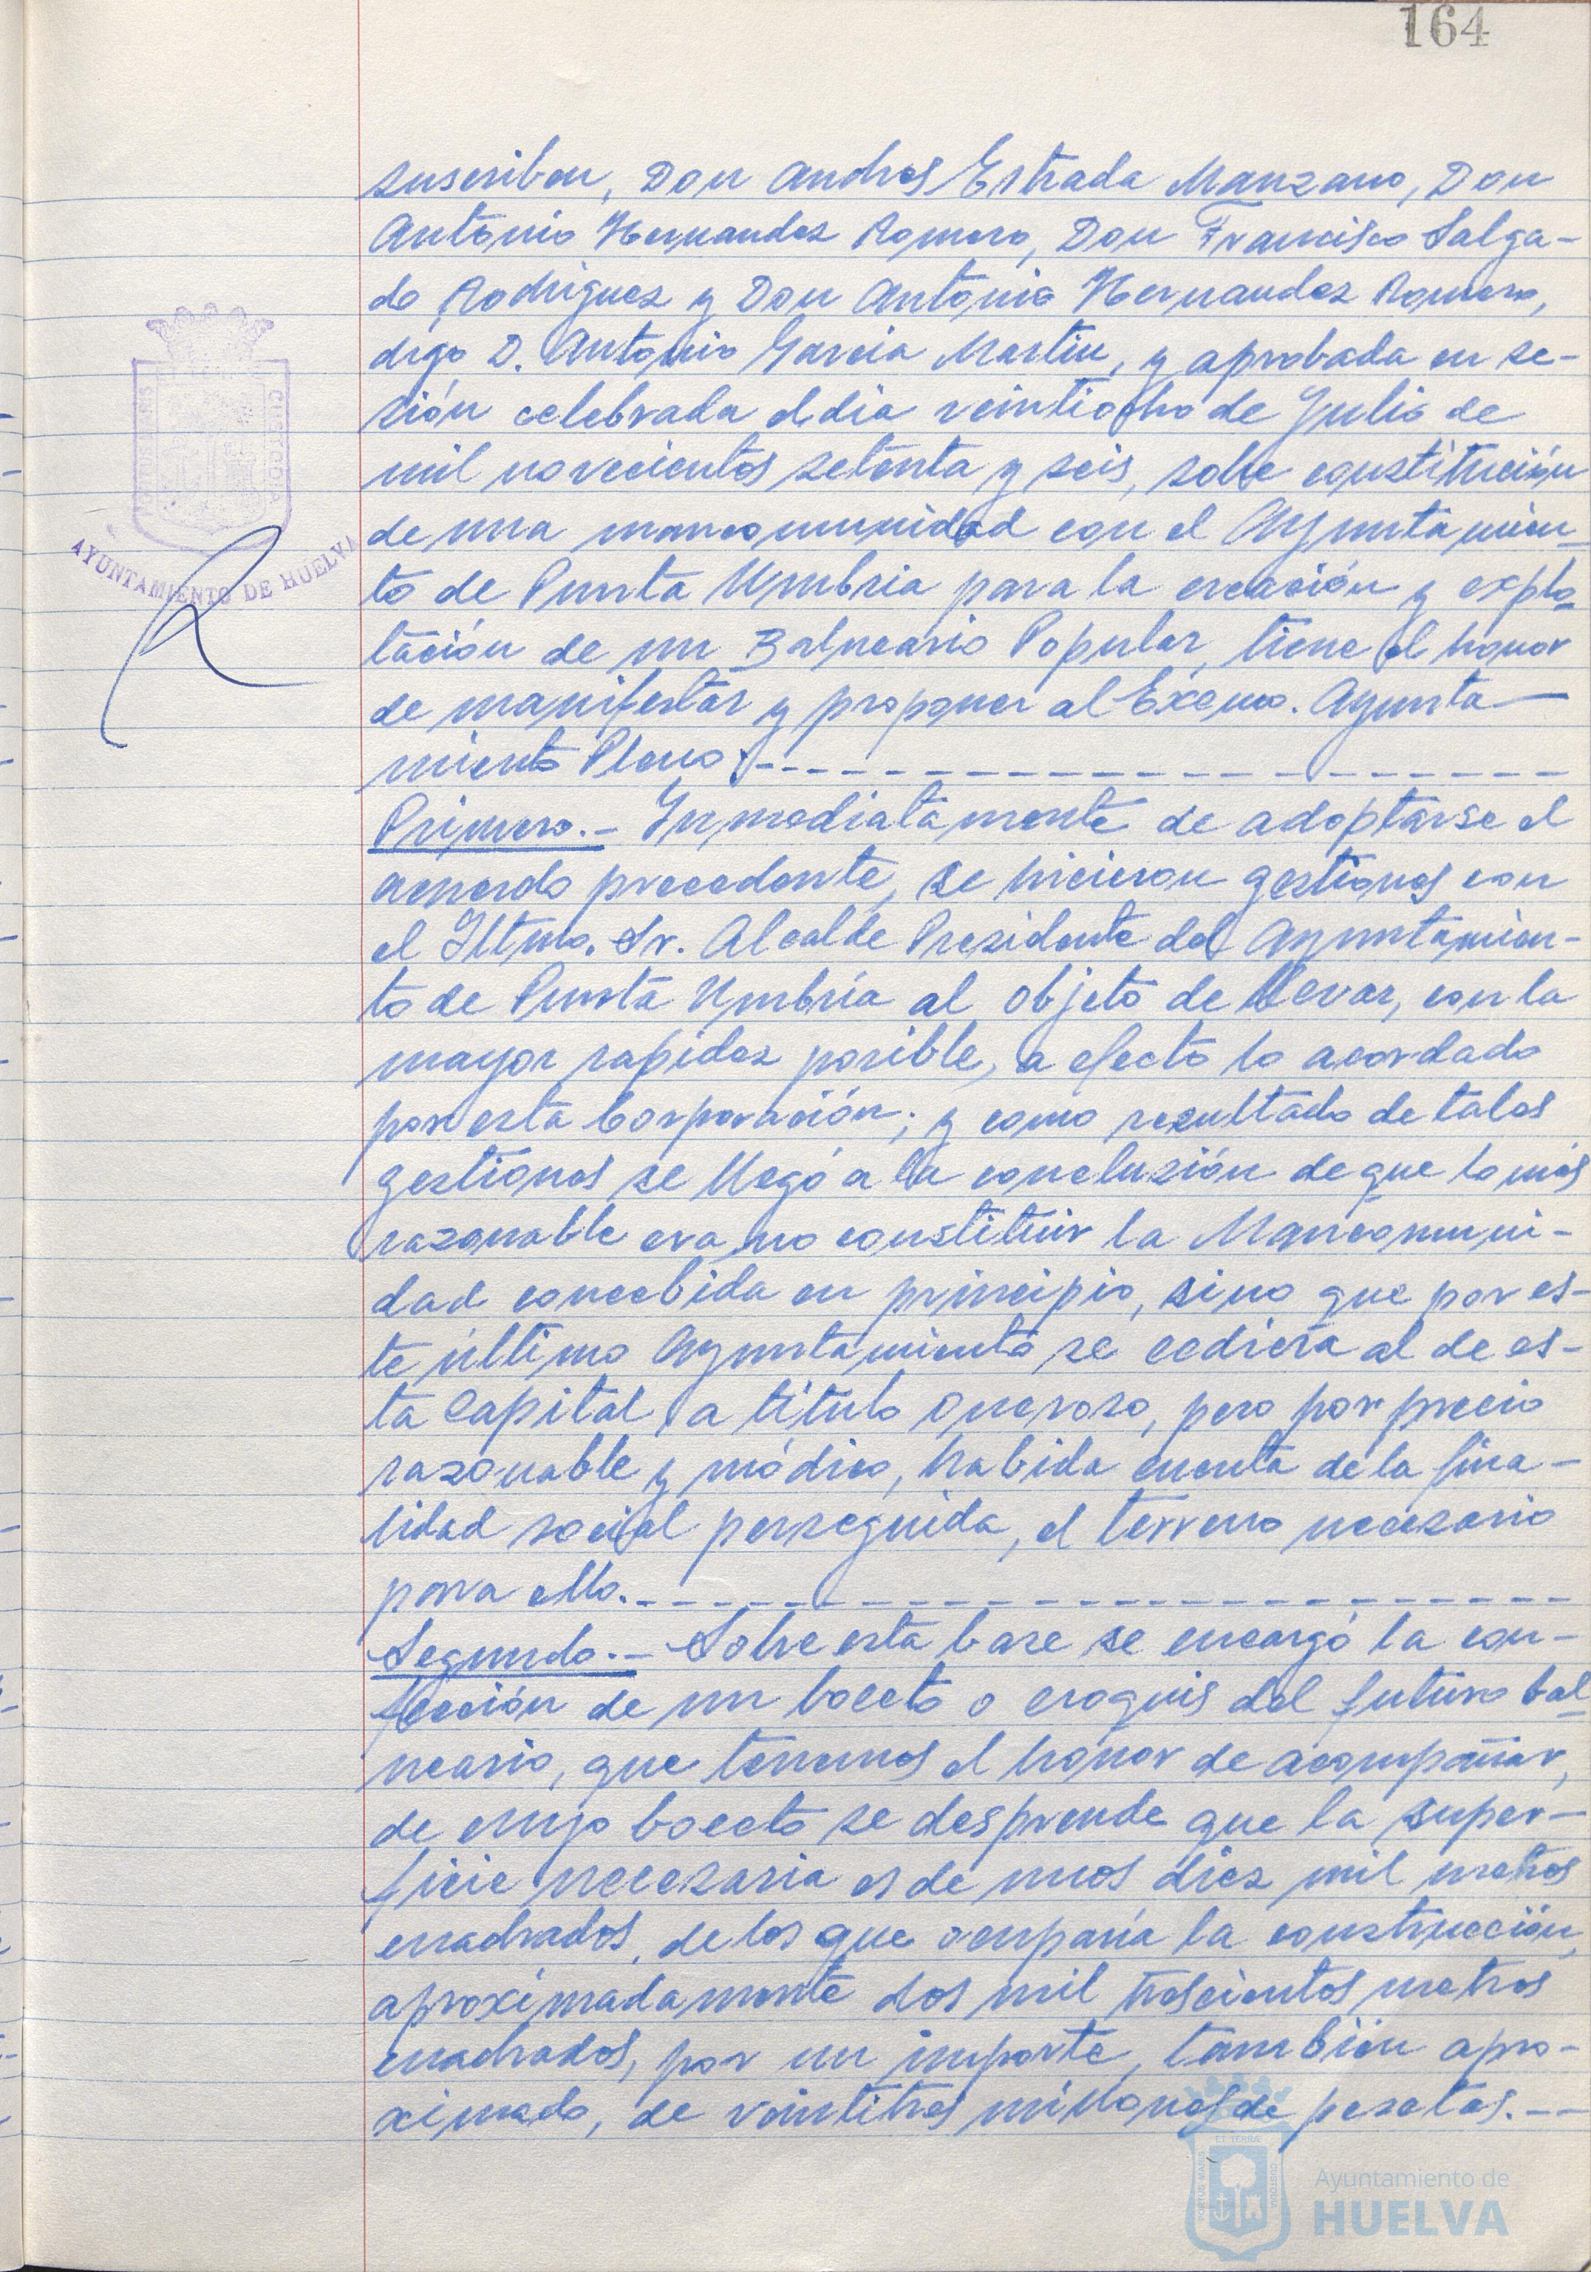 164
suscriben, Don Andres Estrada Manzano, Don
Antonio Hernandez Romero, Don Francisco Salga-
do Rodriguez y Don Antonio Hernandez Romero,
digo D. Antonio Garcia Martin, y aprobada en se-
sión celebrada el dia veintiocho de Julio de
mil novecientos setenta y seis, sobre constitución
de una mancomunidad con el Ayuntamien-
to de Punta Umbria para la creación y explo-
tación de un Balneario Popular, tiene el honor
de manifestar y proponer al Excmo. Ayunta-
miento Pleno:
Primero.- Inmediatamente de adoptarse el
acuerdo precedente, se hicieron gestiones con
el Iltmo. Sr. Alcalde Presidente del Ayuntamien-
to de Punta Umbría al objeto de llevar, con la
mayor rapidez posible, a efecto lo acordado
por esta Corporación; y como resultado de tales
gestiones se llegó a la conclusión de que lo más
razonable era no constituir la Mancomuni-
dad concebida en principio, sino que por es-
te último Ayuntamiento se cediera al de es-
ta Capital, a título oneroso, pero por precio
razonable y módico, habida cuenta de la fina-
lidad social perseguida, el terreno necesario
para ello.
Segundo.- Sobre esta base se encargó la con-
fección de un boceto o croquis del futuro bal-
neario, que tenemos el honor de acompañar,
de cuyo boceto se desprende que la super-
ficie necesaria es de unos diez mil metros
cuadrados, de los que ocuparía la construcción,
aproximadamente dos mil trescientos metros
cuadrados, por un importe, también apro-
ximado, de veintitres millones de pesetas.--
PORTUS MARIS ET TERRAE CUSTODIA
AYUNTAMIENTO DE HUELVA
PORTUS MARIS ET TERRAE CUSTODIA
Ayuntamiento de
HUELVA